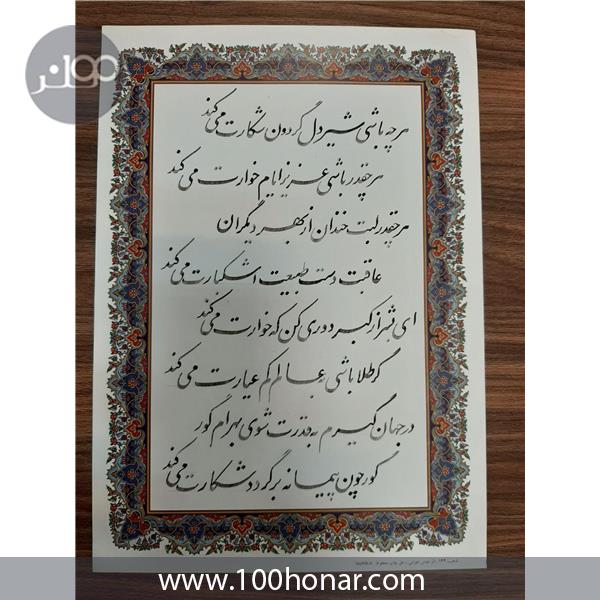 هنر
هر چه باشی شیر دل گردون شکارت می کند
هر چقدر باشی عزیز ایام خوارت می کند
هر چقدر لبت خندان از بهر دیگران
عاقبت دست طبیعت اشکبارت می کند
ای بشر از کبر دوری کن که خوارت می کند
گر طلا باشی عالم کم عیارت می کند
در جهان گیرم به قدرت شوی بهرام گور
گور چون پیمانه برگردد شکارت می کند
www.100honar.com